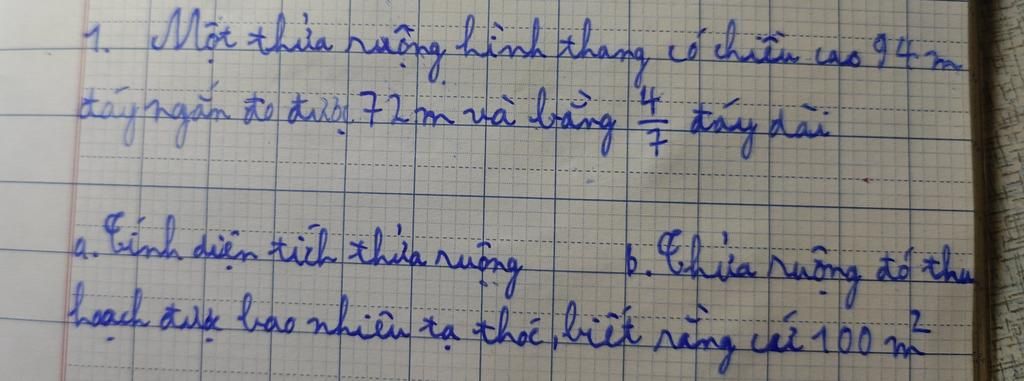 1. Một thửa ruộng hình thang có chiều cao 94m
đáy ngắn đo được 72m và bằng 4/7 đáy dài
a. Tính diện tích thửa ruộng b. Thửa ruộng đó thu
hoạch được bao nhiêu tạ thóc, biết rằng cứ 100 m²